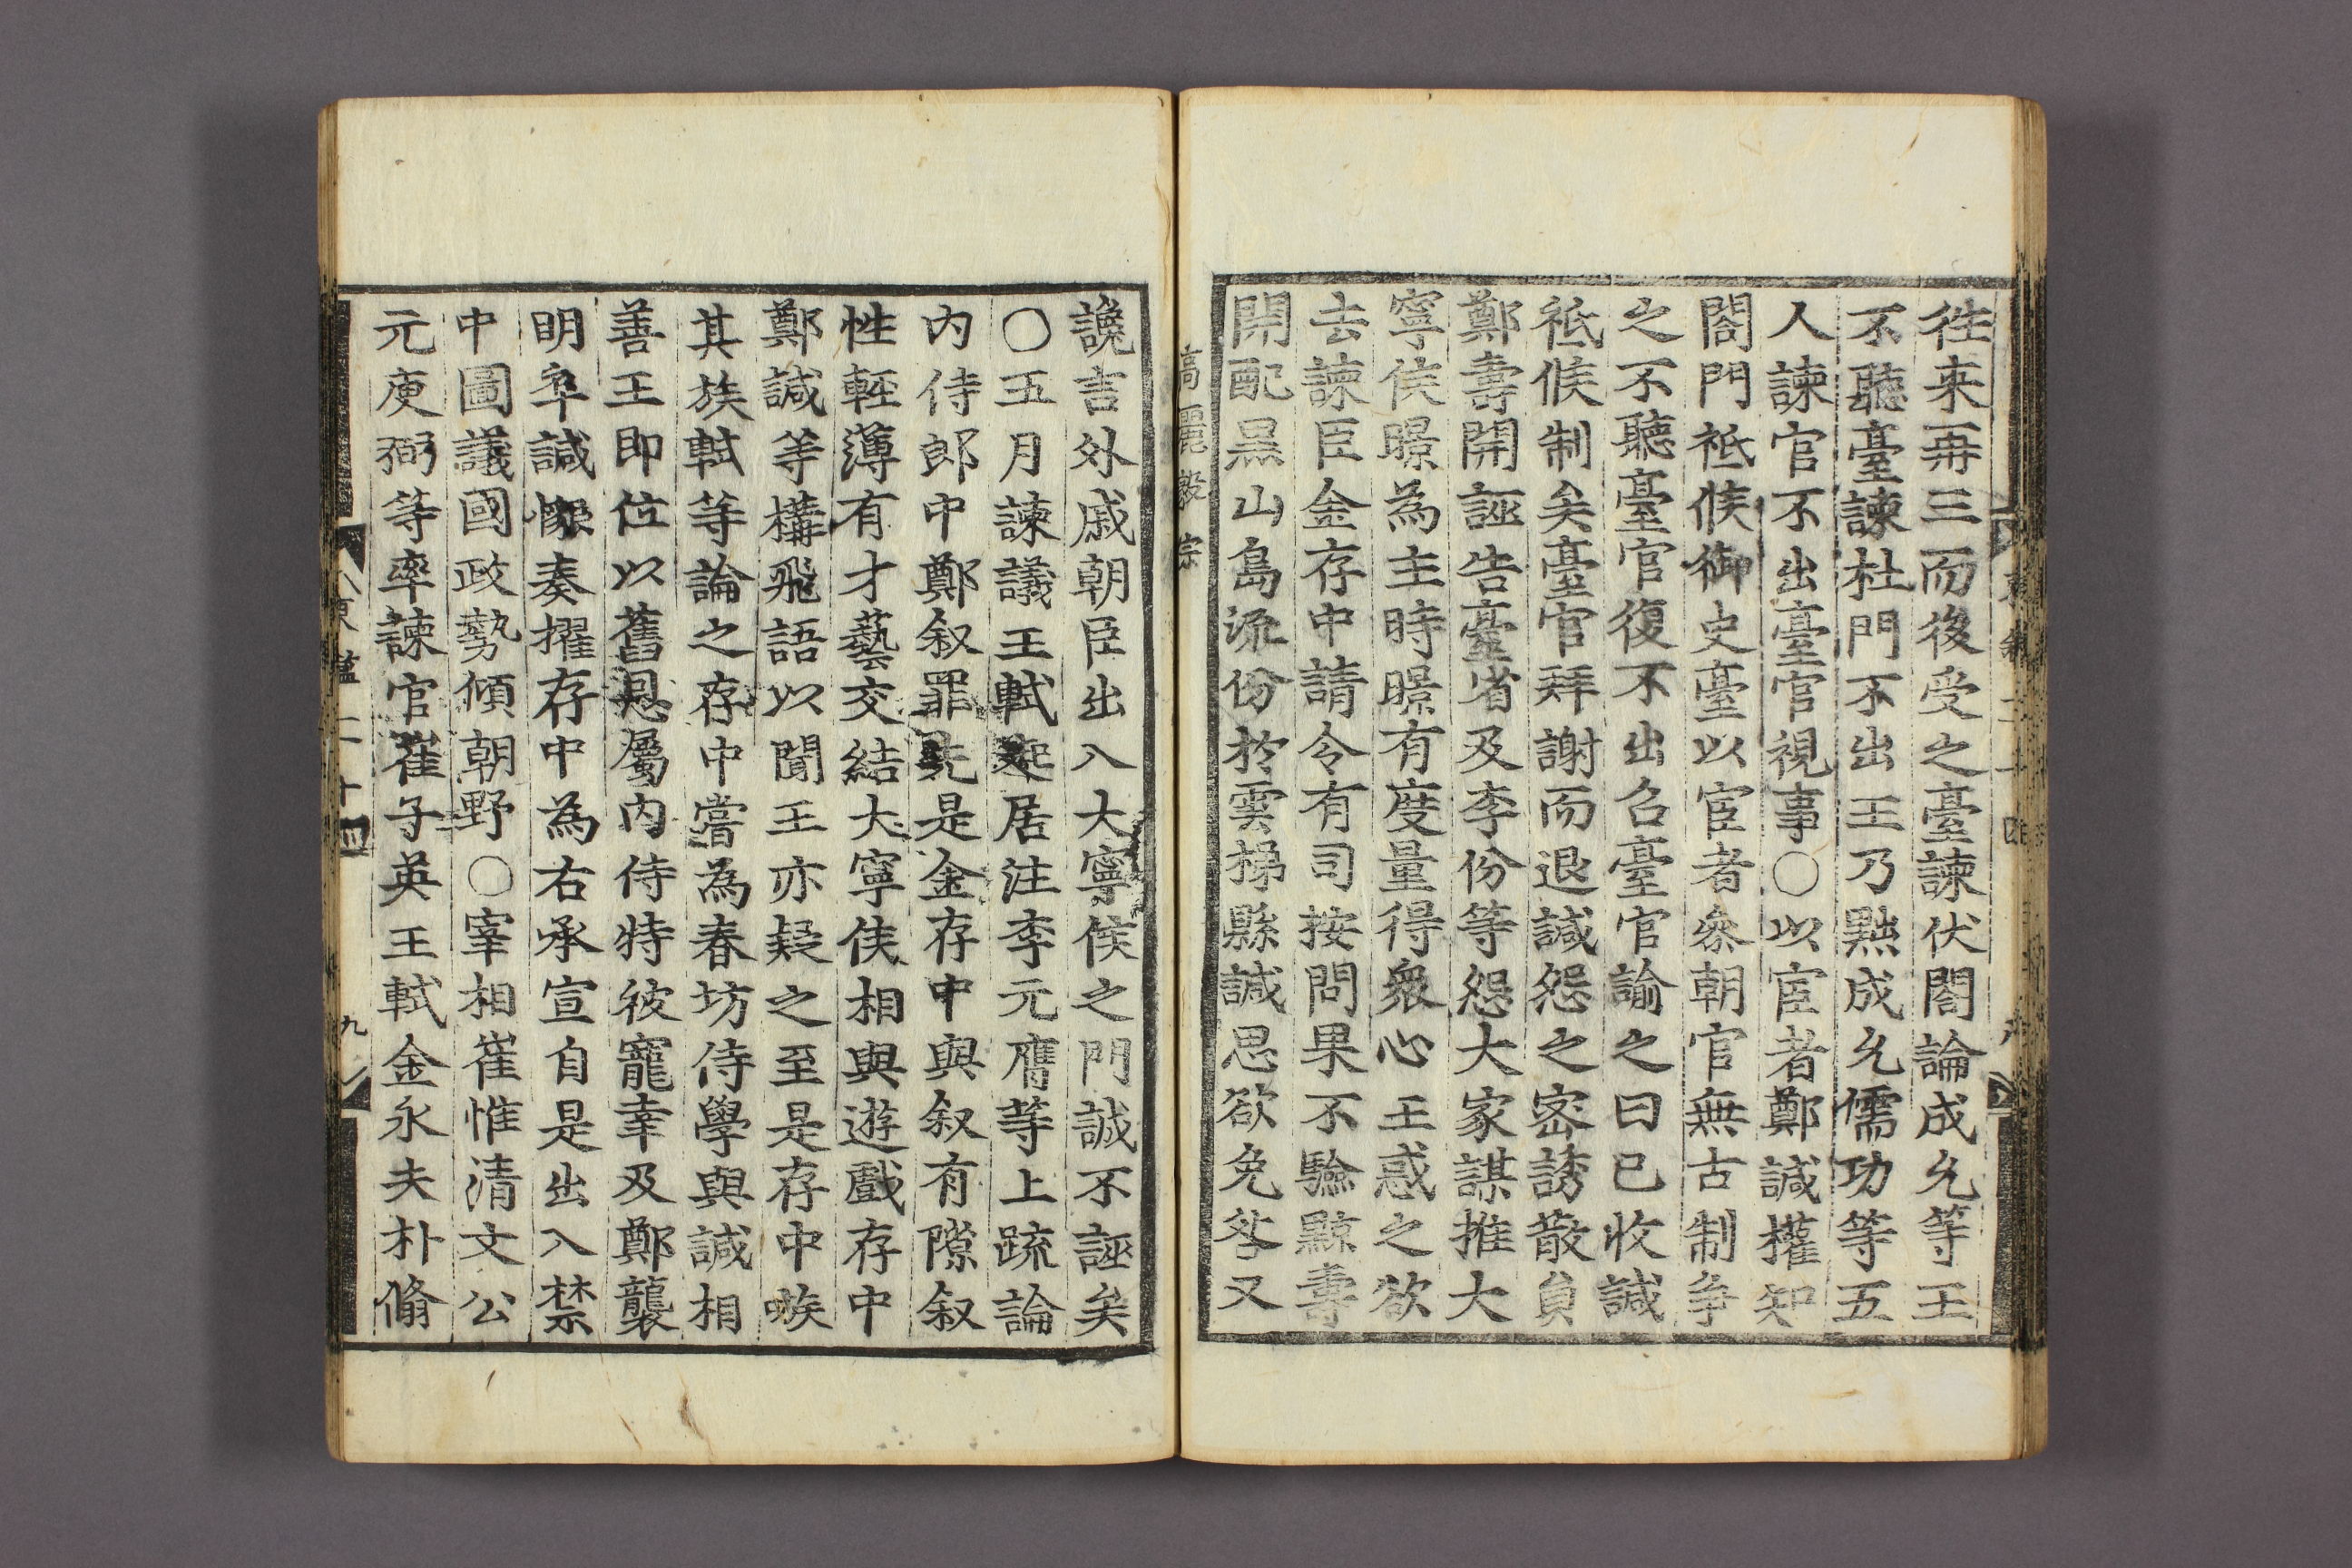 徃来再三而後受之臺諫伏閤論成允等王
不聽臺諫杜門不出王乃黜成允儒功等五
人諫官不出臺官視事○以宦者鄭諴權知
閤門祗候御史臺以宦者叅朝官無古制爭
之不聽臺官復不出召臺官諭之曰已收諴
祗候制矣臺官拜謝而退諴怨之密誘散負
鄭壽開誣告臺省及李份等怨大家謀推大
寧侯暻為主時暻有度量得衆心王惑之欲
去諫臣金存中請令有司按問果不驗黥壽
開配黒山島流份於雲梯縣諴思欲免咎又
高麗毅宗
讒言外戚朝臣出入大寧侯之門誠不誣矣
○五月諫議王軾起居注李元膺等上䟽論
内侍郎中鄭叙罪先是金存中與叙有隙叙
性輕薄有才藝交結大寧侯相與遊戲存中
鄭諴等構飛語以聞王亦疑之至是存中嗾
其族軾等論之存中嘗為春坊侍學與諴相
善王即位以舊恩屬内侍特彼寵幸及鄭襲
明卒諴㯽奏擢存中為右承宣自是出入禁
中圖議國政勢傾朝野○宰相崔惟清文公
元庾弼等率諫官崔子英王軾金永夫朴脩
東鑑二十四 九